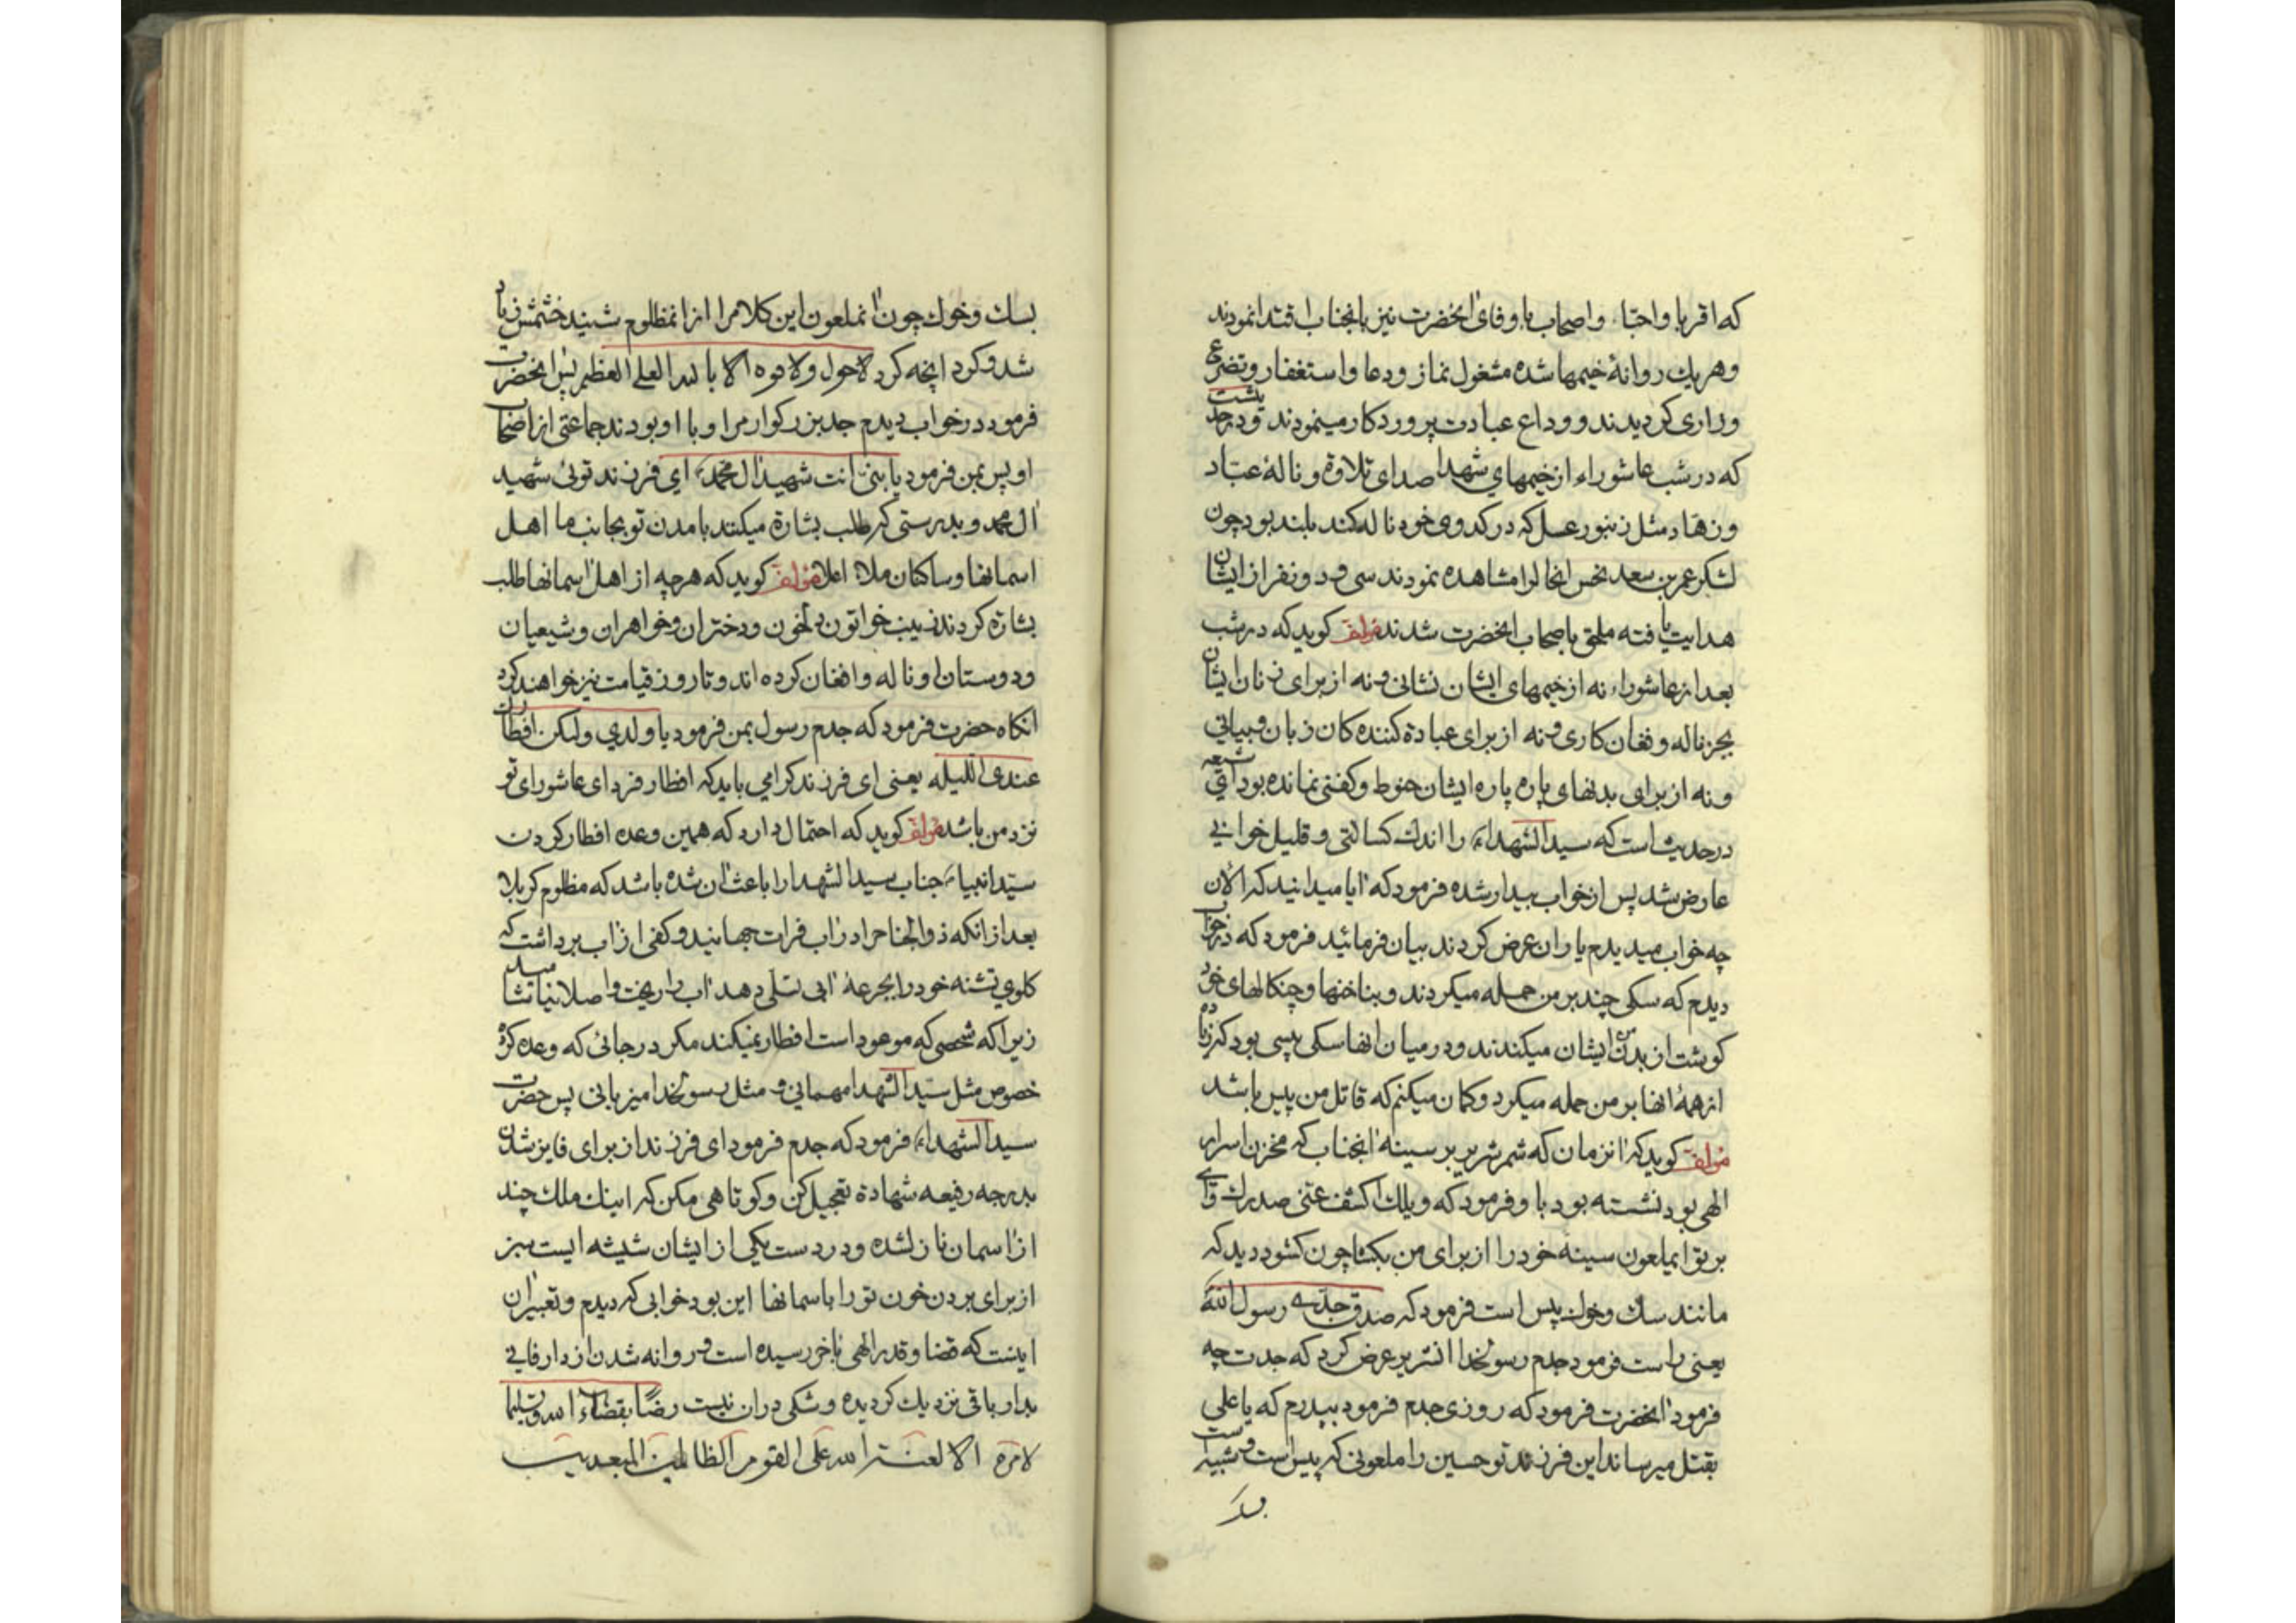 که اقربا و احبّا و اصحاب با وفای آنحضرت نیز بآنجناب اقتدا نمودند
و هریك روانهٔ خیمها شده مشغول نماز و دعا و استغفار و تضرع
و زاری کردیدند و وداع عبادت پروردکار مینمودند و در حدیثست
که در شب عاشوراء از خیمهای شهدا صدای تلاوة و نالهٔ عبّاد
و زهّاد مثل زنبور عسل که در کندوی خود ناله کند بلند بود چون
لشکر عمر بن سعد نحس انحال را مشاهده نمودند سی و دو نفر از ایشان
هدایت یافته ملحق باصحاب انحضرت شدند مؤلف کوید که در شب
بعد از عاشوراء نه از خیمهای ایشان نشانی و نه از برای زنان ایشان
بجز ناله و فغان کاری و نه از برای عبادة کننده کان زبان و بیانی
و نه از برای بدنهای پاره پاره ایشان حنوط و کفنی نمانده بود ای شیعه
در حدیث است که سید الشهداء را اندك کسالتی و قلیل خوابی
عارض شد پس از خواب بیدار شده فرمود که آیا میدانید که الأن
چه خواب میدیدم یاران عرض کردند بیان فرمائید فرمود که در خواب
دیدم که سکی چند بر من حمله میکردند و بناخنها و چنکالهای خود
کوشت از بدن ایشان میکندند و در میان انها سکی پیسی بود که زیاده
از همهٔ انها بر من حمله میکرد و کمان میکنم که قاتل من پیس باشد
مؤلف کوید که آنزمان که شمر شریر بر سینه آنجناب که مخزن اسرار
الهی بود نشسته بود باو فرمود که ویلك اکشف عنی صدرك وای
بر تو ایملعون سینه خود را از برای من بکشا چون کشود دید که
مانند سك و خوك پیس است فرمود که صدق جدّی رسول الله
یعنی راست فرمود جدم رسولخدا انشریر عرض کرد که جدت چه
فرمود آنحضرت فرمود که روزی جدم فرمود بپدرم که یا علی
بقتل میرساند این فرزند تو حسین را ملعونی که پیس است و شبیه است
بسك
بسك و خوك چون آنملعون این کلام را از انمظلوم شنید خشمش زیاد
شد و کرد انچه کرد لا حول ولا قوه الا بالله العلی العظیم پس انحضرت
فرمود در خواب دیدم جد بزرکوارم را و با او بودند جماعتی از اصحاب
او پس بمن فرمود یا بنیّ انت شهید آل محمدؐ ای فرزند توئی شهید
آل محمد و بدرستی که طلب بشارة میکنند بامدن تو بجانب ما اهل
اسمانها و ساکنان ملاء اعلا مؤلف کوید که هرچه از اهل اسمانها طلب
بشارة کردند زینب خواتون دلخون و دختران و خواهران و شیعیان
و دوستان او ناله و افغان کرده اند و تا روز قیامت نیز خواهند کرد
انکاه حضرت فرمود که جدم رسول بمن فرمود یا ولدی ولیکن افطارك
عندی اللیله یعنی ای فرزند کرامی باید که افطار فردای عاشورای تو
نزد من باشد مؤلف کوید که احتمال دارد که همین وعده افطار کردن
سیّد انبیاء جناب سید الشهدا را باعث آن شده باشد که مظلوم کربلا
بعد از انکه ذو الجناح را در آب فرات جهانید و کفی از آب برداشت که
کلوی تشنه خود را بجرعهٔ آبی تسلی دهد آب را ریخت و اصلا نیاشامید
زیرا که شخصی که موعود است افطار نمیکند مکر در جائی که وعده کرده
خصوص مثل سیّد الشهدا مهمانی و مثل رسولخدا میزبانی پس حضرت
سید الشهداء فرمود که جدم فرمود ای فرزند از برای فایز شدن
بدرجه رفیعه شهادة تعجیل کن و کوتاهی مکن که اینك ملك چند
از آسمان نازلشده و در دست یکی از ایشان شیشه ایست سبز
از برای بردن خون تو را باسمانها این بود خوابی که دیدم و تعبیر آن
اینست که قضا و قدر الهی بآخر رسیده است و روانه شدن از دار فانی
بدار باقی نزدیك کردیده و شکی در ان نیست رضًا بقضاء الله و تسلیما
لامره الا لعنة الله علی القوم الظالمین